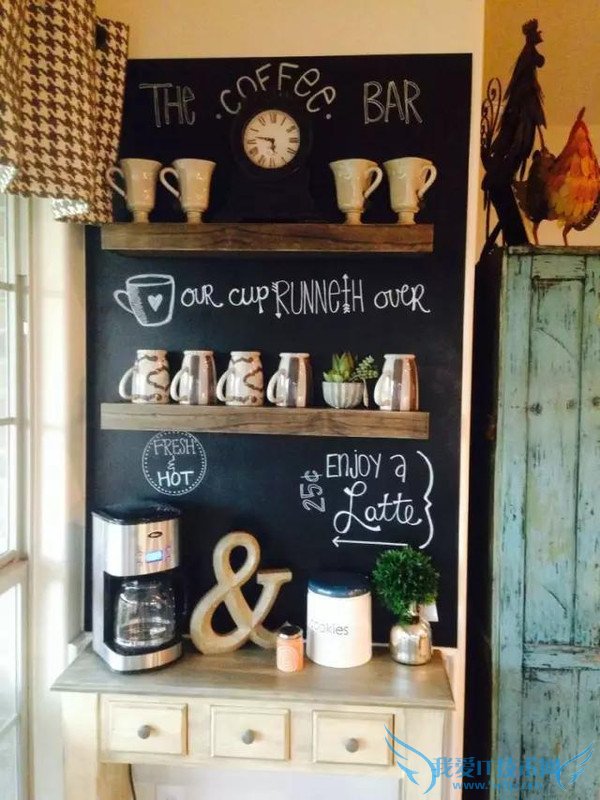 THE COFFEE BAR
OUR CUP RUNNETH OVER
FRESH
HOT
25¢
ENJOY A
Latte
cookies